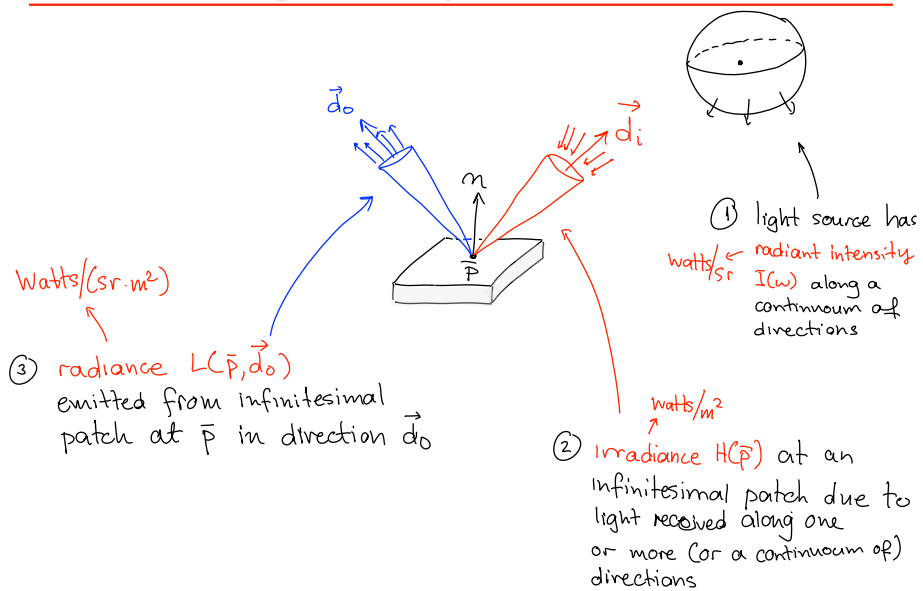 d⃗o
d⃗i
n
p̄
① light source has
watts/sr ← radiant intensity
I(ω) along a
continuoum of
directions
Watts/(sr·m²)
③ radiance L(p̄,d⃗o)
emitted from infinitesimal
patch at p̄ in direction d⃗o
watts/m²
② irradiance H(p̄) at an
infinitesimal patch due to
light received along one
or more (or a continuoum of)
directions